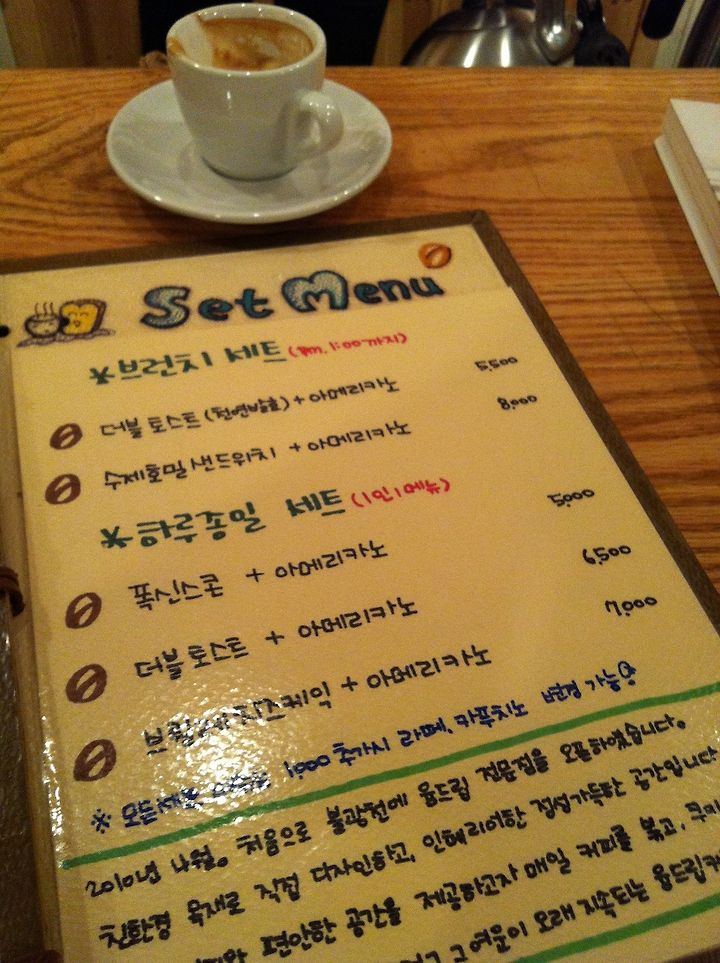 Set Menu
*브런치 세트 (Pm.1:00까지)
더블 토스트(천연발효)+아메리카노 5.500
수제호밀샌드위치 +아메리카노 8.000
*하루종일 세트 (1인1메뉴)
폭신스콘 + 아메리카노 5.000
더블토스트 + 아메리카노 6.500
치즈케익 + 아메리카노 7.000
※ 모든세트 1,000 추가시 라떼, 카푸치노 변경 가능
2010년 4월. 처음으로 불광천에 융드립 전문점을 오픈하였습니다.
친환경 목재로 직접 디자인하고, 인테리어한 정성가득한 공간입니다
편안한 공간을 제공하고자 매일 커피를 볶고, 쿠키
그 여운이 오래 지속되는 융드립커